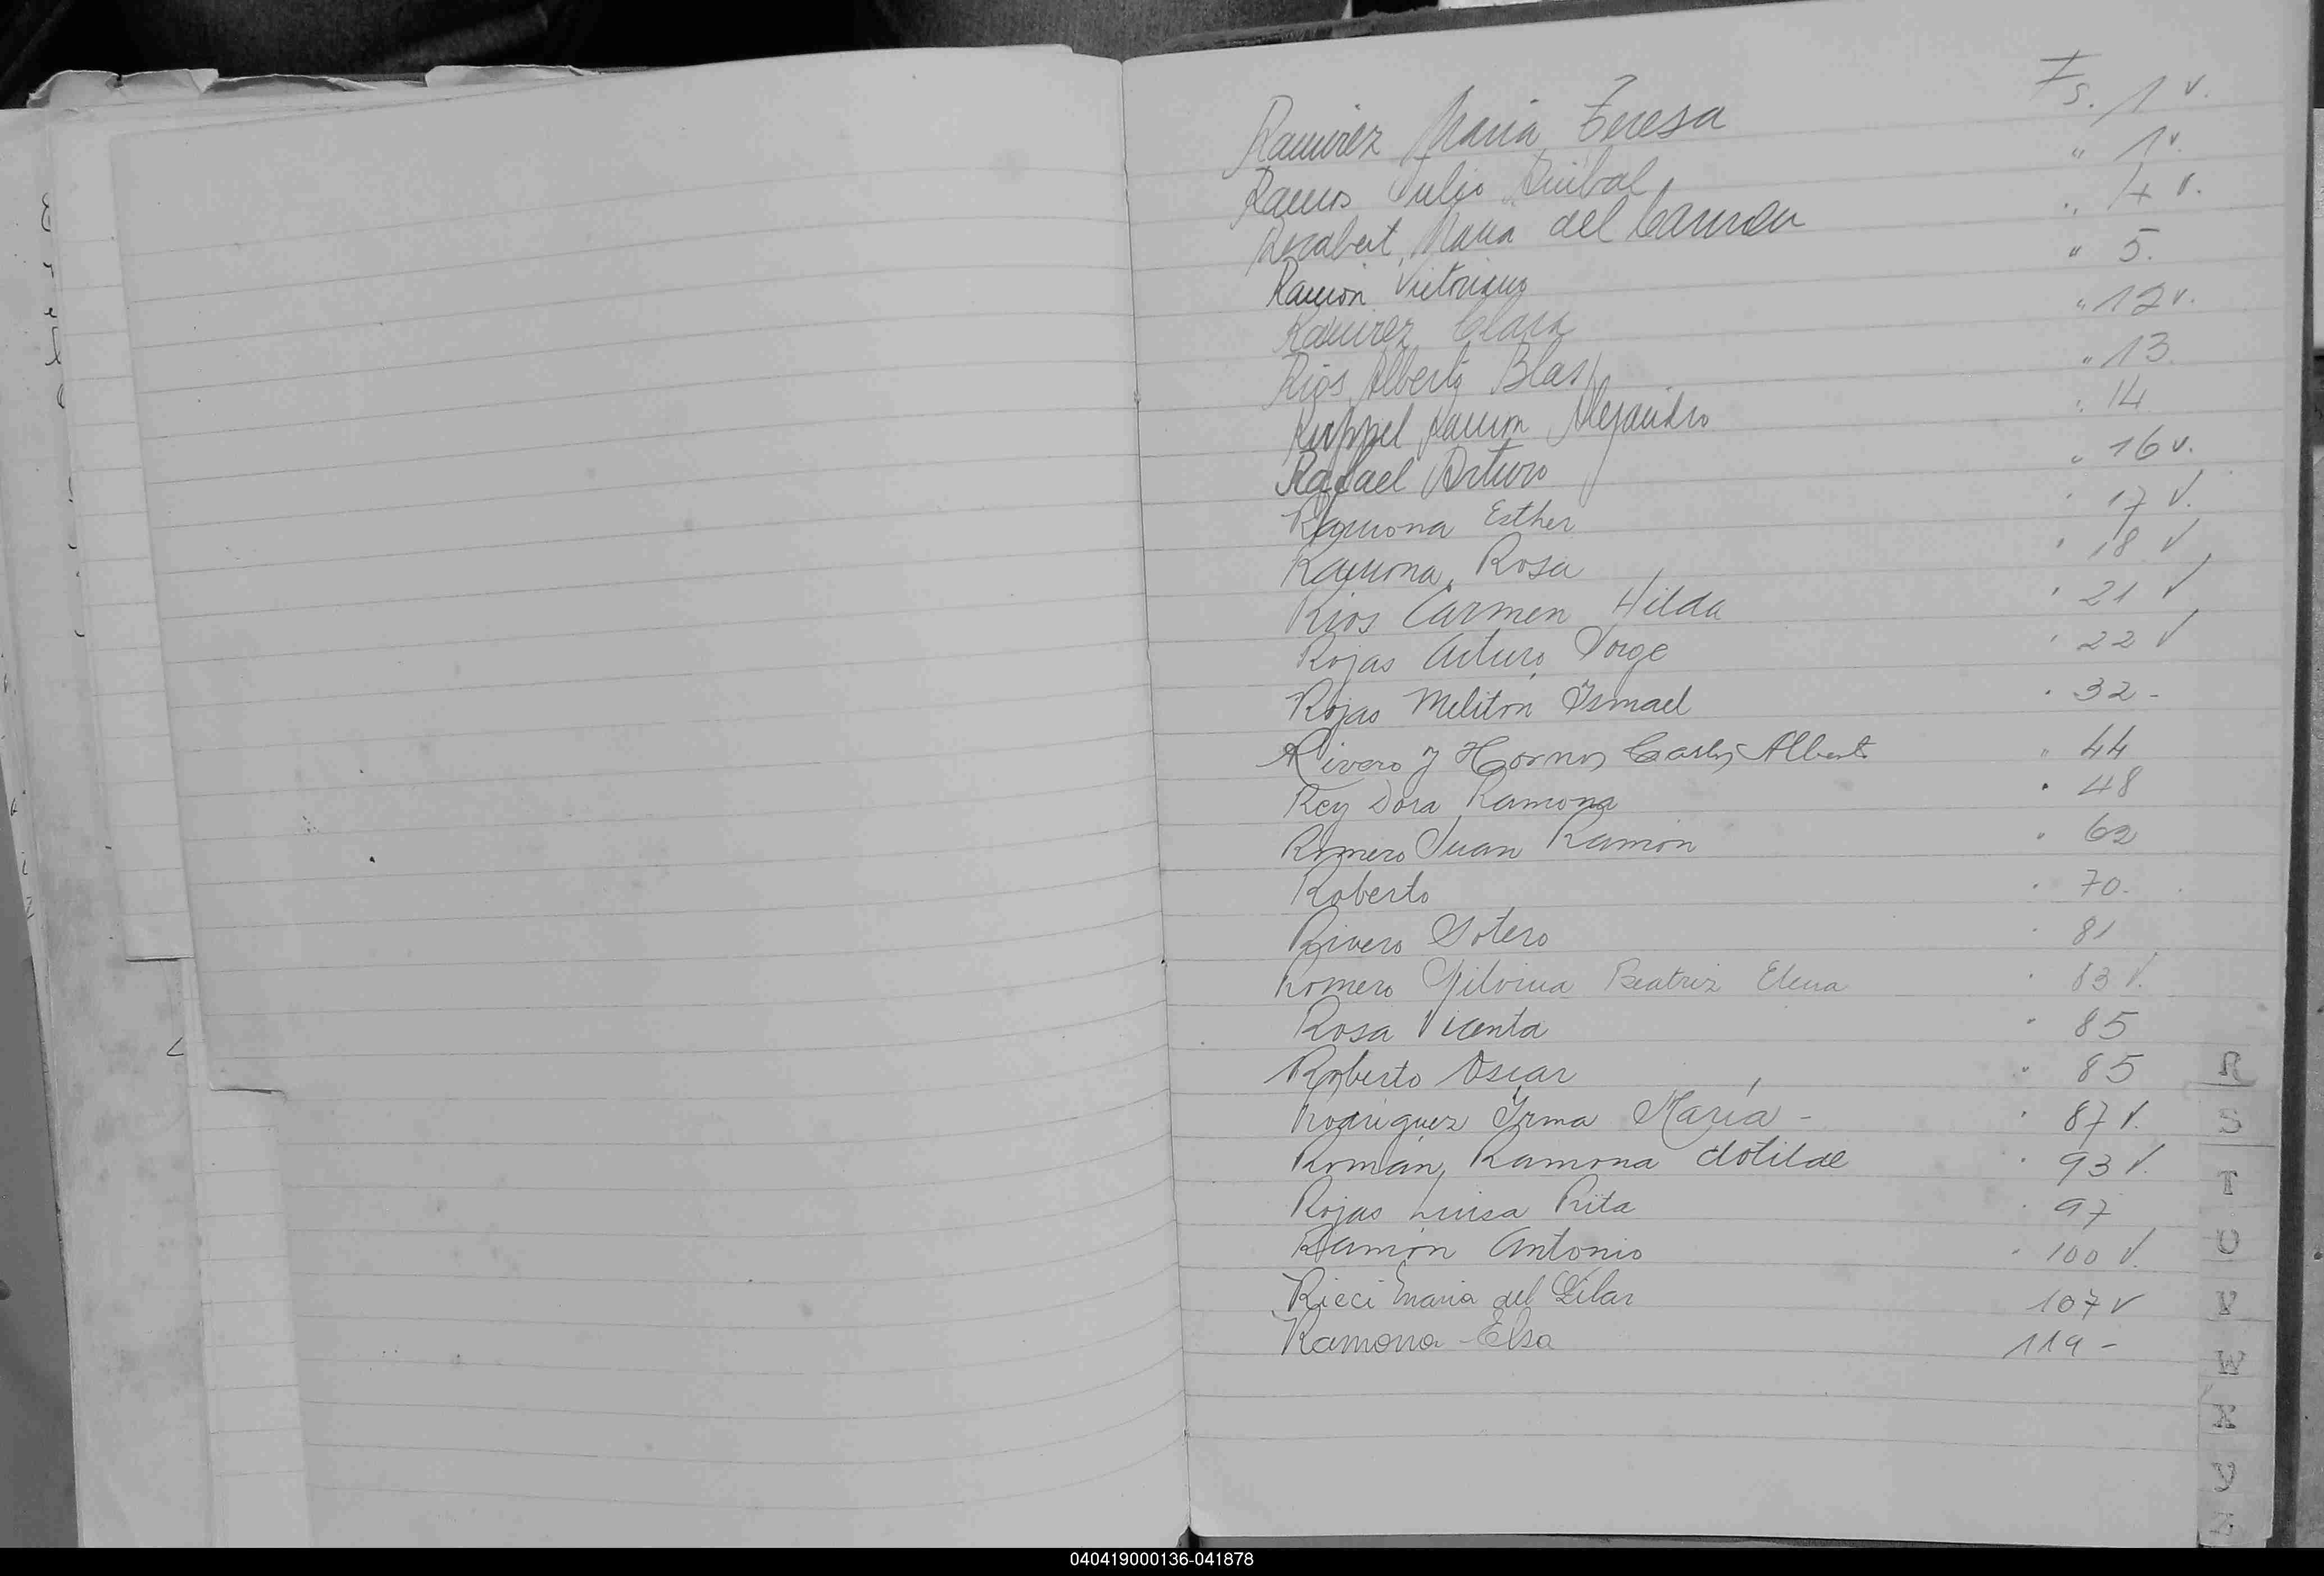 Fs. 1 v.
Ramirez Maria Teresa
Ramos Julio Anibal " 1 v.
Recabert Maria del Carmen " 4 v.
Ramón Victoriano " 5.
Ramirez Clara " 12 v.
Rios Alberto Blas " 13.
Ruppel Ramón Alejandro " 14
Rafael Arturo " 16 v.
Ramona Esther " 17 v.
Ramona Rosa " 18 v
Rios Carmen Hilda " 21 v
Rojas Arturo Jorge " 22 v
Rojas Melitón Ismael " 32 -
Rivero y Hornos Carlos Alberto " 44
Rey Dora Ramona " 48
Romero Juan Ramón " 62
Roberto " 70.
Rivero Sotero " 81
Romero Beatriz Elena " 83 v.
Rosa Vicenta " 85
Roberto Oscar " 85
Rodriguez Irma María - " 87 v.
Román, Ramona Clotilde " 93 v.
Rojas Luisa Rita " 97
Ramón Antonio " 100 v.
Ricci Maria del Pilar 107 v
Ramona Elsa 119 -
R
S
T
U
V
W
X
Y
Z
040419000136-041878